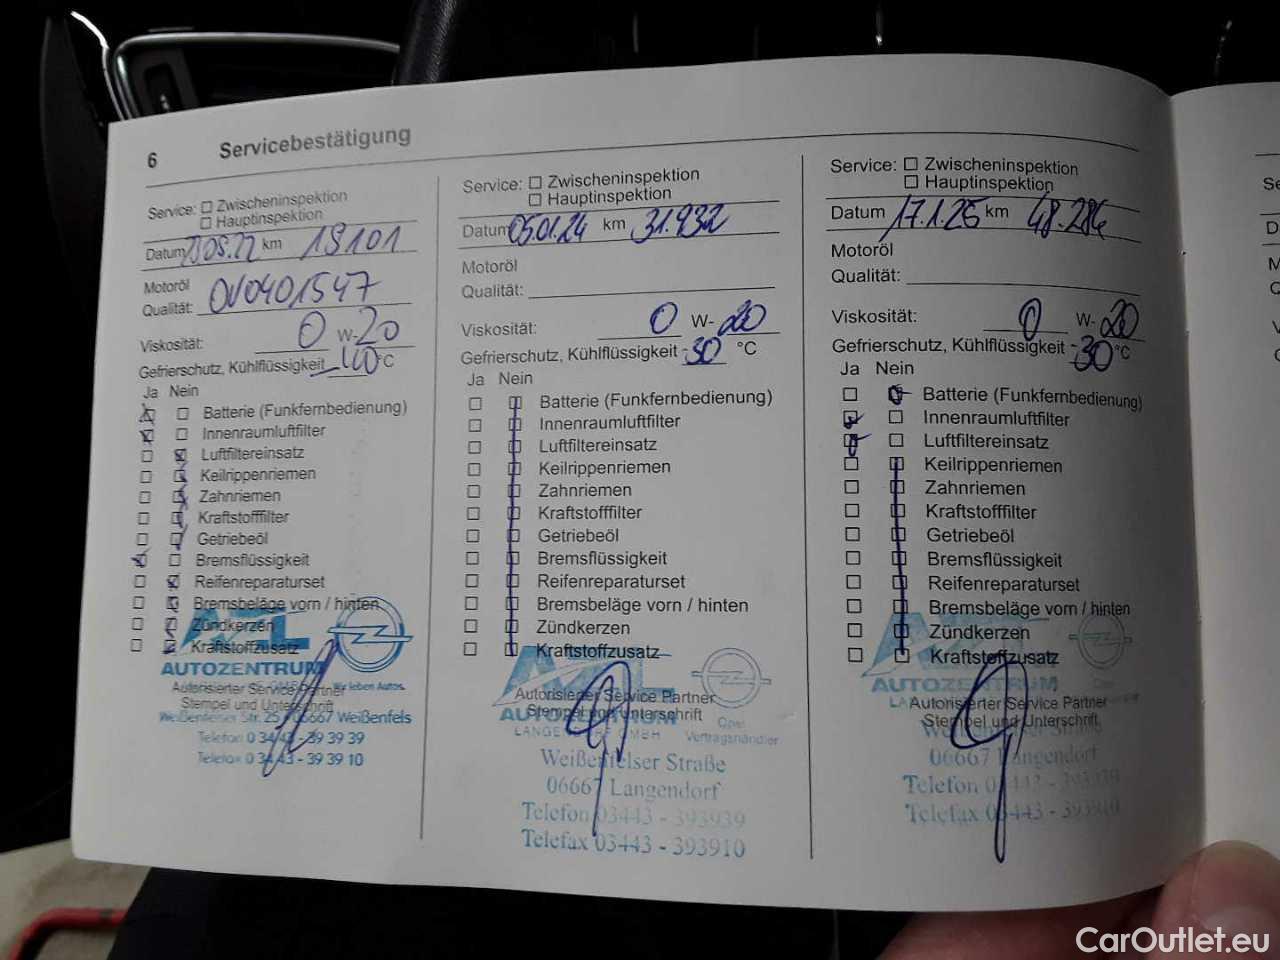 6 Servicebestätigung
Service: Zwischeninspektion
Hauptinspektion
Datum 05.22 km 19101
Motoröl
Qualität: 0V0401547
Viskosität: 0 W-20
Gefrierschutz, Kühlflüssigkeit -40 °C
Ja Nein
Batterie (Funkfernbedienung)
Innenraumluftfilter
Luftfiltereinsatz
Keilrippenriemen
Zahnriemen
Kraftstofffilter
Getriebeöl
Bremsflüssigkeit
Reifenreparaturset
Bremsbeläge vorn / hinten
Zündkerzen
Kraftstoffzusatz
AZL
AUTOZENTRUM
Wir leben Autos.
Autorisierter Service Partner
Stempel und Unterschrift
Weißenfelser Str. 25 · 06667 Weißenfels
Telefon 0 34 43 - 39 39 39
Telefax 0 34 43 - 39 39 10
Service: Zwischeninspektion
Hauptinspektion
Datum 05.01.24 km 31.932
Motoröl
Qualität:
Viskosität: 0 W-20
Gefrierschutz, Kühlflüssigkeit -30 °C
Ja Nein
Batterie (Funkfernbedienung)
Innenraumluftfilter
Luftfiltereinsatz
Keilrippenriemen
Zahnriemen
Kraftstofffilter
Getriebeöl
Bremsflüssigkeit
Reifenreparaturset
Bremsbeläge vorn / hinten
Zündkerzen
Kraftstoffzusatz
AZL
Autorisierter Service Partner
AUTOZENTRUM
Stempel und Unterschrift
LANGENDORF GMBH
Opel
Vertragshändler
Weißenfelser Straße
06667 Langendorf
Telefon 03443 - 393939
Telefax 03443 - 393910
Service: Zwischeninspektion
Hauptinspektion
Datum 17.1.25 km 48.284
Motoröl
Qualität:
Viskosität: 0 W-20
Gefrierschutz, Kühlflüssigkeit -30 °C
Ja Nein
Batterie (Funkfernbedienung)
Innenraumluftfilter
Luftfiltereinsatz
Keilrippenriemen
Zahnriemen
Kraftstofffilter
Getriebeöl
Bremsflüssigkeit
Reifenreparaturset
Bremsbeläge vorn / hinten
Zündkerzen
Kraftstoffzusatz
AZL
AUTOZENTRUM
Autorisierter Service Partner
Stempel und Unterschrift
Weißenfelser Straße
06667 Langendorf
Telefon 03443 - 393939
Telefax 03443 - 393910
CarOutlet.eu